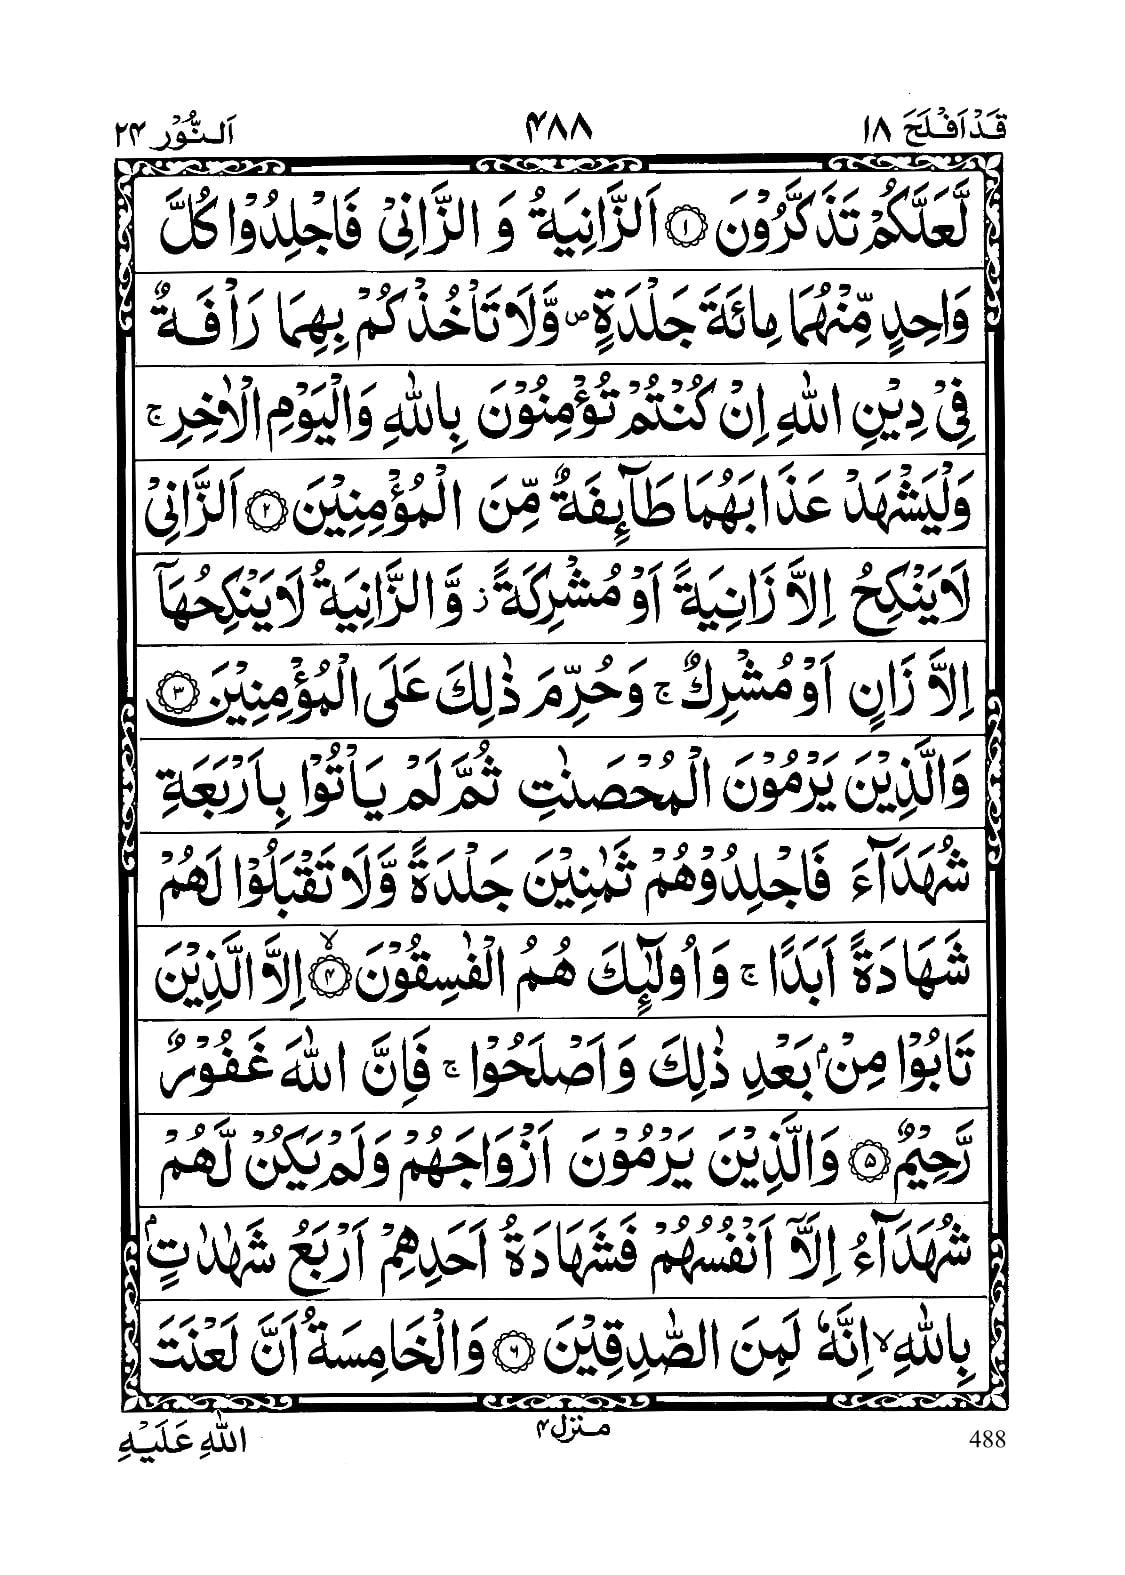 قَدْ اَفْلَحَ ۱۸
۴۸۸
اَلنُّوْر ۲۴
لَّعَلَّكُمْ تَذَكَّرُوْنَ ۝۱ اَلزَّانِيَةُ وَ الزَّانِىْ فَاجْلِدُوْا كُلَّ
وَاحِدٍ مِّنْهُمَا مِائَةَ جَلْدَةٍ ۖ وَّلَا تَاْخُذْكُمْ بِهِمَا رَاْفَةٌ
فِىْ دِيْنِ اللّٰهِ اِنْ كُنْتُمْ تُؤْمِنُوْنَ بِاللّٰهِ وَالْيَوْمِ الْاٰخِرِ ۚ
وَلْيَشْهَدْ عَذَابَهُمَا طَآئِفَةٌ مِّنَ الْمُؤْمِنِيْنَ ۝۲ اَلزَّانِىْ
لَا يَنْكِحُ اِلَّا زَانِيَةً اَوْ مُشْرِكَةً ز وَّالزَّانِيَةُ لَا يَنْكِحُهَآ
اِلَّا زَانٍ اَوْ مُشْرِكٌ ۚ وَحُرِّمَ ذٰلِكَ عَلَى الْمُؤْمِنِيْنَ ۝۳
وَالَّذِيْنَ يَرْمُوْنَ الْمُحْصَنٰتِ ثُمَّ لَمْ يَاْتُوْا بِاَرْبَعَةِ
شُهَدَآءَ فَاجْلِدُوْهُمْ ثَمٰنِيْنَ جَلْدَةً وَّلَا تَقْبَلُوْا لَهُمْ
شَهَادَةً اَبَدًا ۚ وَاُولٰٓئِكَ هُمُ الْفٰسِقُوْنَ ۙ۝۴ اِلَّا الَّذِيْنَ
تَابُوْا مِنْۢ بَعْدِ ذٰلِكَ وَاَصْلَحُوْا ۚ فَاِنَّ اللّٰهَ غَفُوْرٌ
رَّحِيْمٌ ۝۵ وَالَّذِيْنَ يَرْمُوْنَ اَزْوَاجَهُمْ وَلَمْ يَكُنْ لَّهُمْ
شُهَدَآءُ اِلَّآ اَنْفُسُهُمْ فَشَهَادَةُ اَحَدِهِمْ اَرْبَعُ شَهٰدٰتٍۢ
بِاللّٰهِ ۙ اِنَّهٗ لَمِنَ الصّٰدِقِيْنَ ۝۶ وَالْخَامِسَةُ اَنَّ لَعْنَتَ
اللّٰهِ عَلَيْهِ
منزل ۴
488